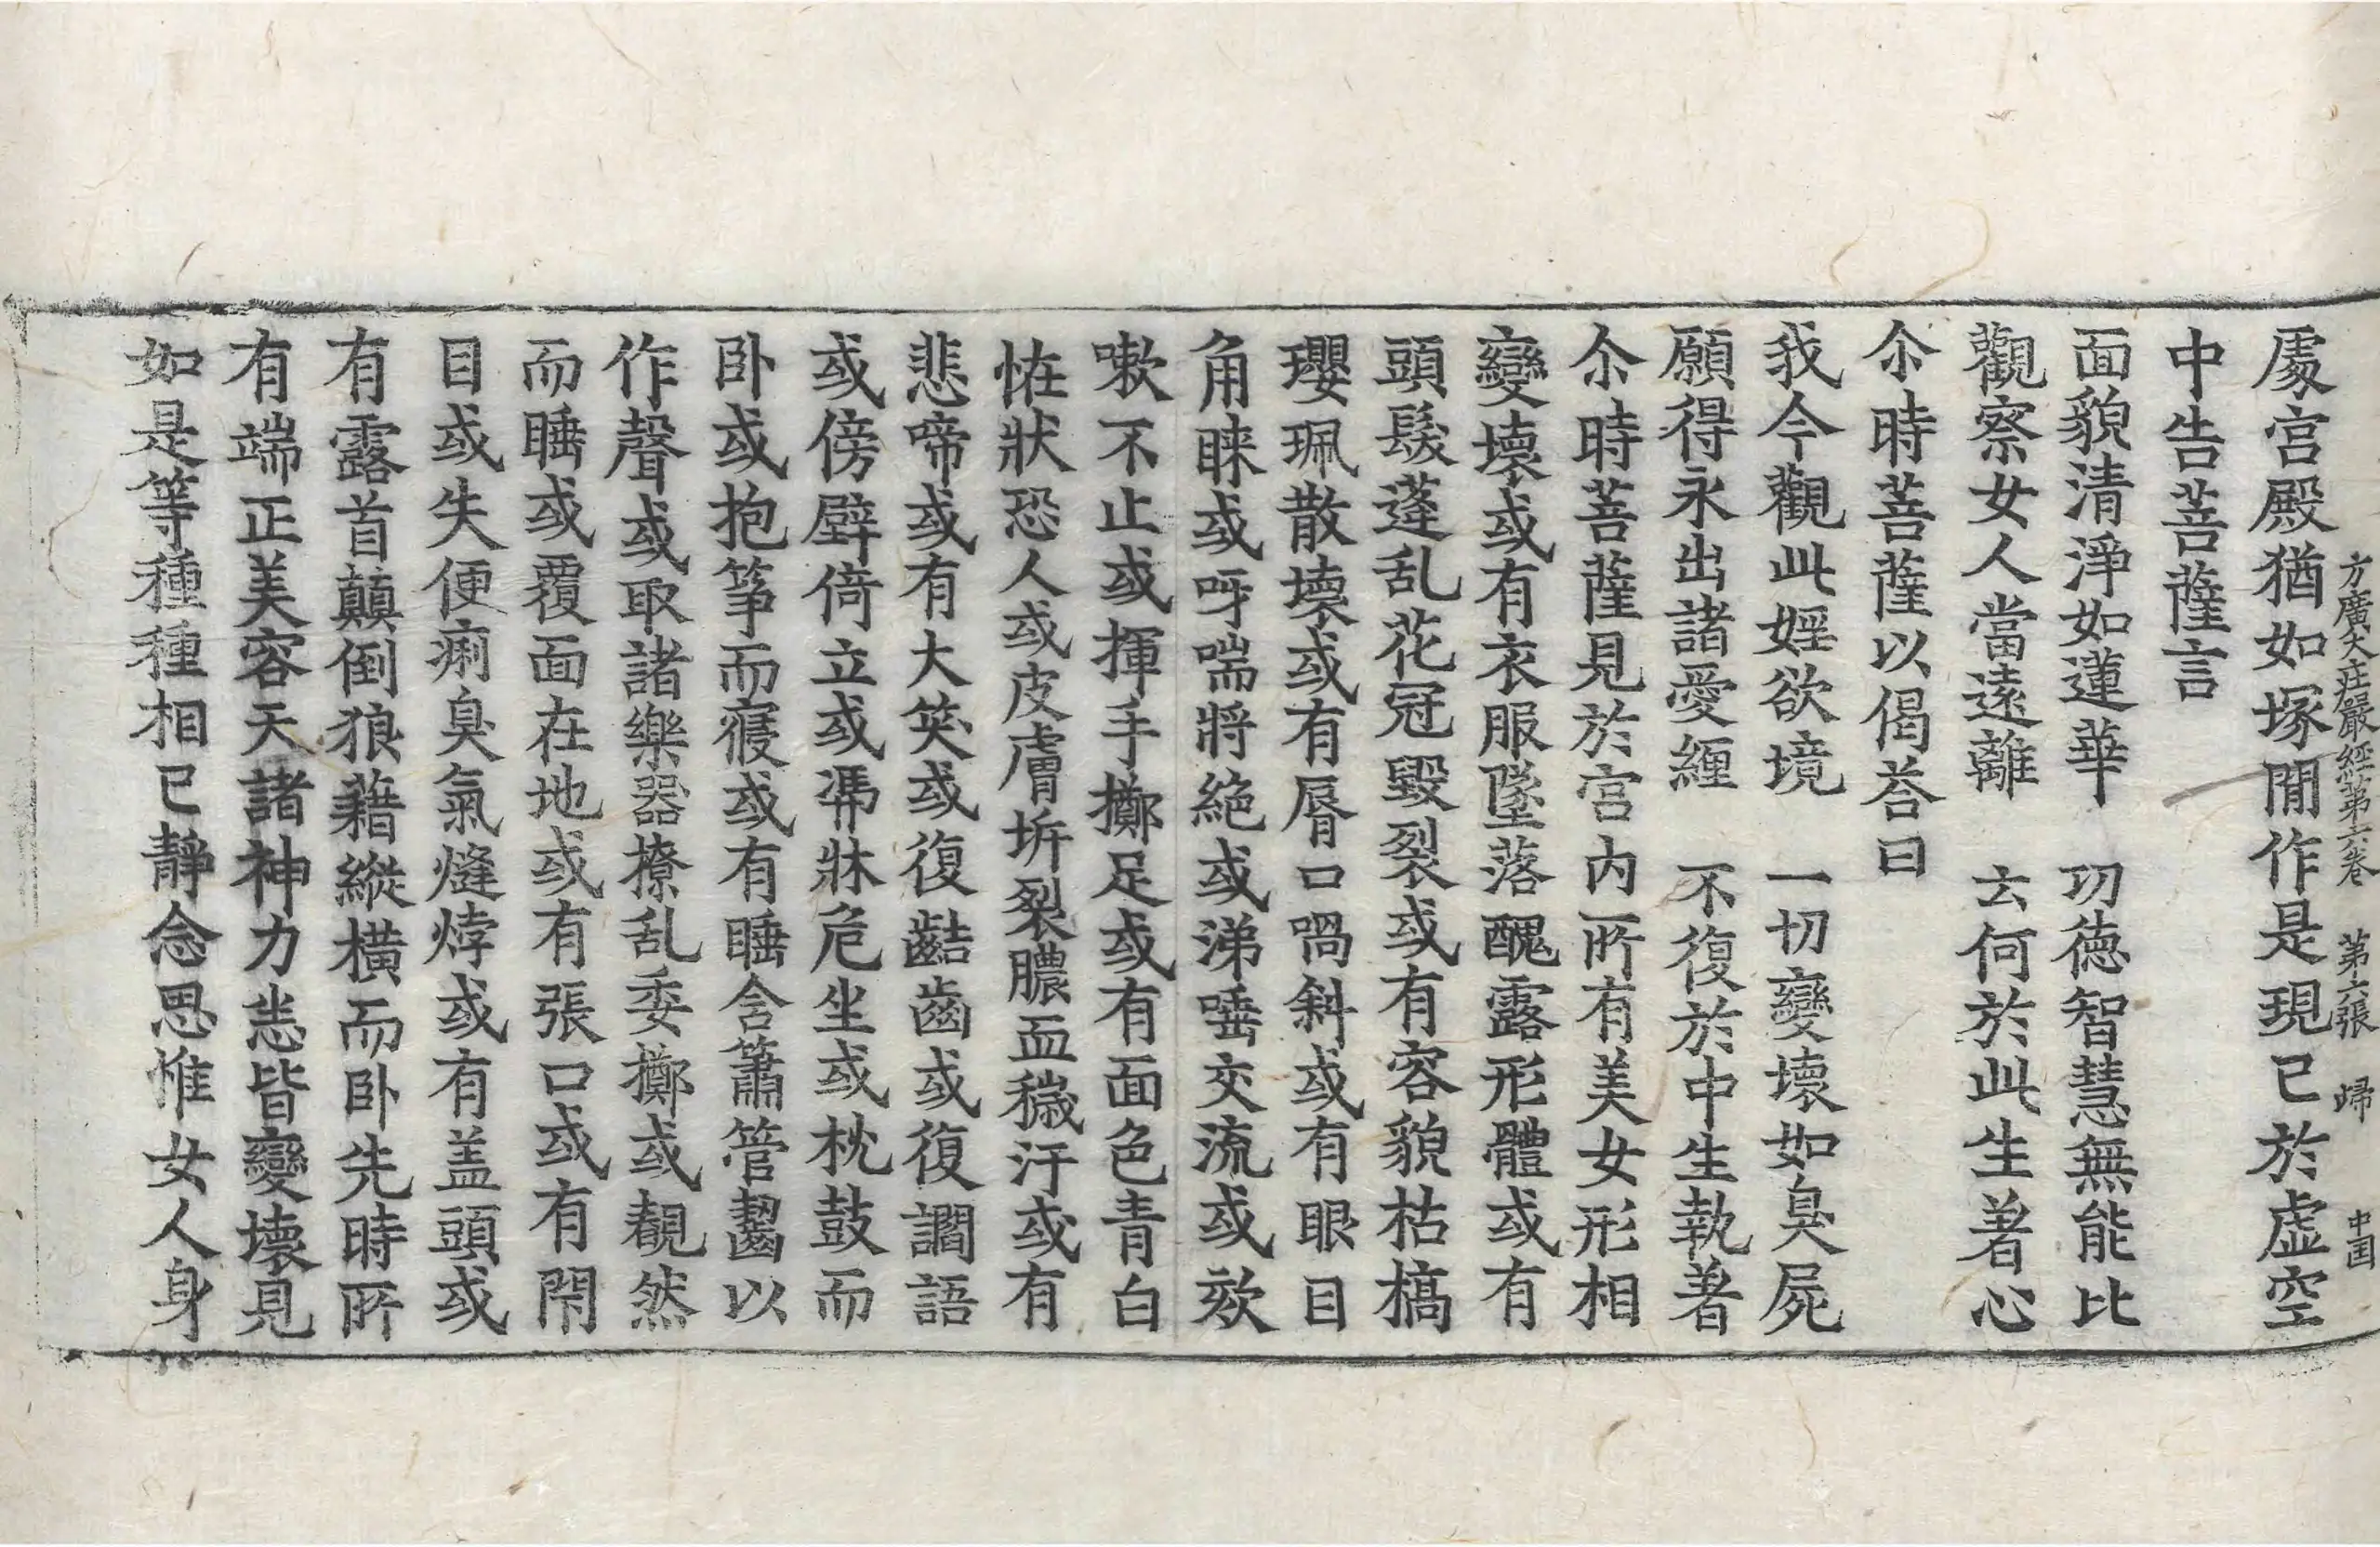 方廣大庄嚴經第六卷 第六張 歸 中国
處宮殿猶如塚閒作是現已於虛空
中告菩薩言
面貌清淨如蓮華 功德智慧無能比
觀察女人當遠離 云何於此生著心
尒時菩薩以偈荅曰
我今觀此婬欲境 一切變壞如臭屍
願得永出諸愛纏 不復於中生執著
尒時菩薩見於宮内所有美女形相
變壞或有衣服墜落醜露形體或有
頭髮蓬乱花冠毀裂或有容貌枯槁
瓔珮散壞或有脣口喎斜或有眼目
角睐或呀喘將絶或涕唾交流或欬
嗽不止或揮手擲足或有面色青白
恠狀恐人或皮膚坼裂膿血穢汙或有
悲啼或有大笑或復齘齒或復讇語
或傍壁倚立或馮牀危坐或枕鼓而
卧或抱筝而寢或有睡含簫管齧以
作聲或取諸樂器撩乱委擲或覩然
而睡或覆面在地或有張口或有閇
目或失便痢臭氣熢㶿或有盖頭或
有露首顛倒狼藉縱橫而卧先時所
有端正美容天諸神力恙皆變壞見
如是等種種相已靜念思惟女人身